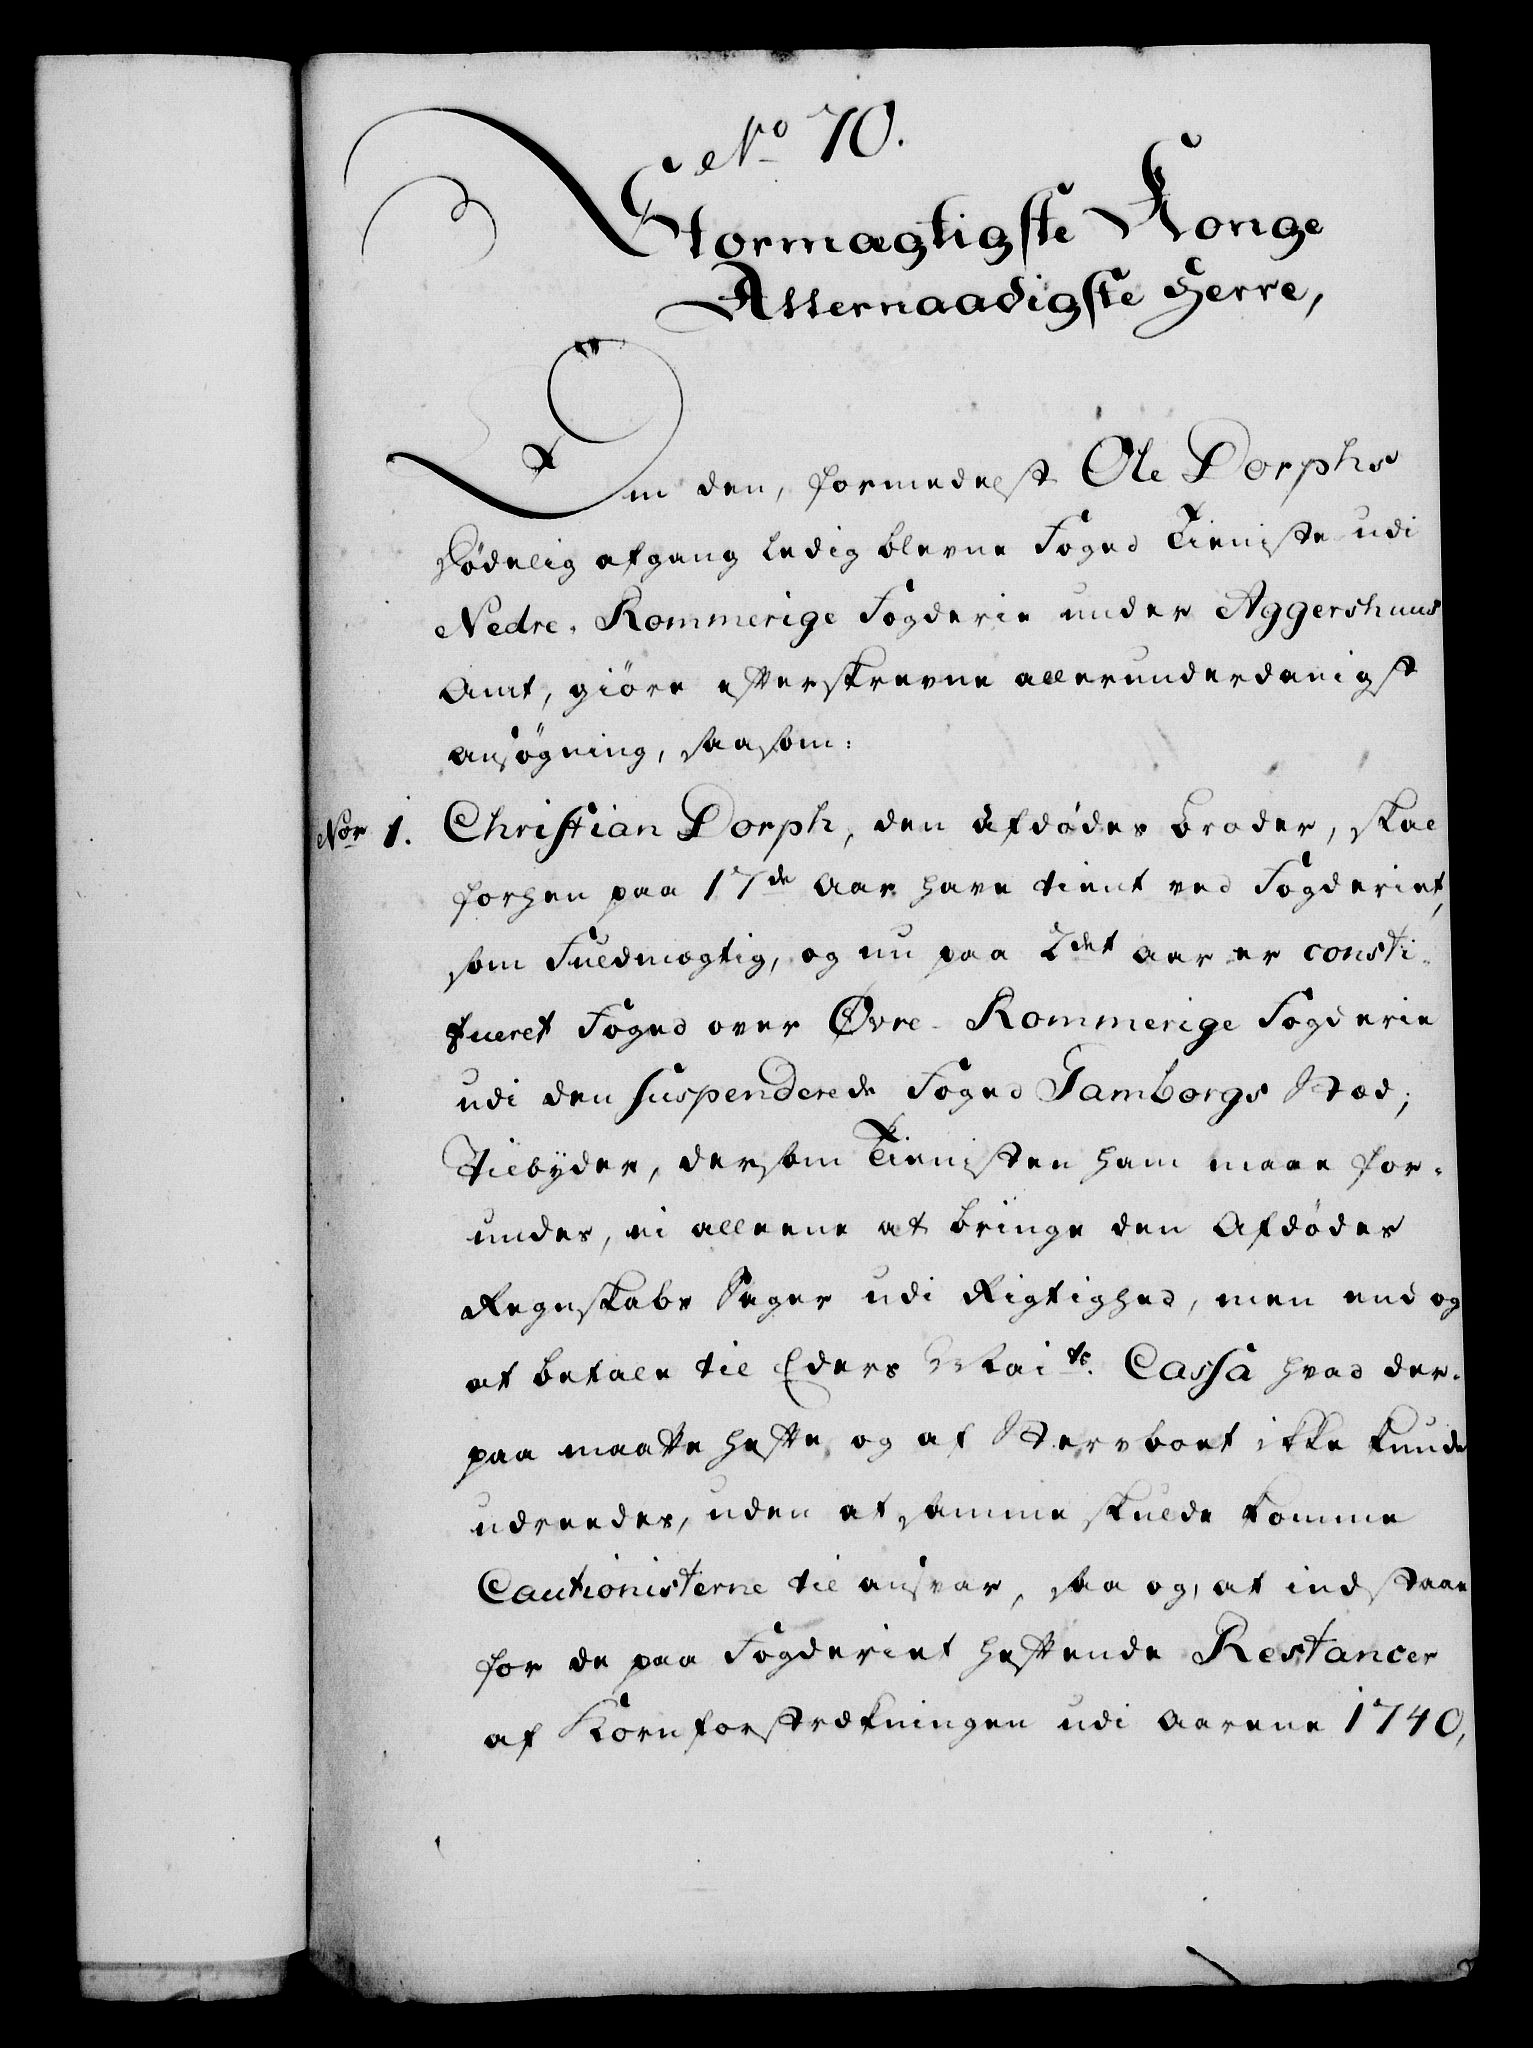 No 70.
Stormægtigste Konge
Allernaadigste Herre,
Om den, formedelst Ole Dorphs
dødelig afgang ledig blevne Foged Tieniste udi
Nedre-Rommerige Fogderie under Aggershuus
Amt, giøre efterskrevne allerunderdanigst
ansøgning, saasom:
Nor 1. Christian Dorph, den afdødes broder, skal
forhen paa 17de Aar have tient ved Fogderiet,
som Fuldmægtig, og nu paa 2det aar er consti-
tueret Foged over Øvre-Rommerige Fogderie
udi den suspenderede Foged Gamborgs Stæd;
Tilbyder, dersom Tienisten ham maae for-
undes, ei alleene at bringe den Afdødes
Regnskabs Sager udi Rigtighed, men end og
at betale til Eders Maits. Cassa hvad der-
paa maatte hefte, og af Sterboet ikke kunde
udreedes, uden at samme skulde komme
Cautionisterne til ansvar, saa og, at indstaae
for de paa Fogderiet heftende Restancer
af Kornforstrækningen udi Aarene 1740,